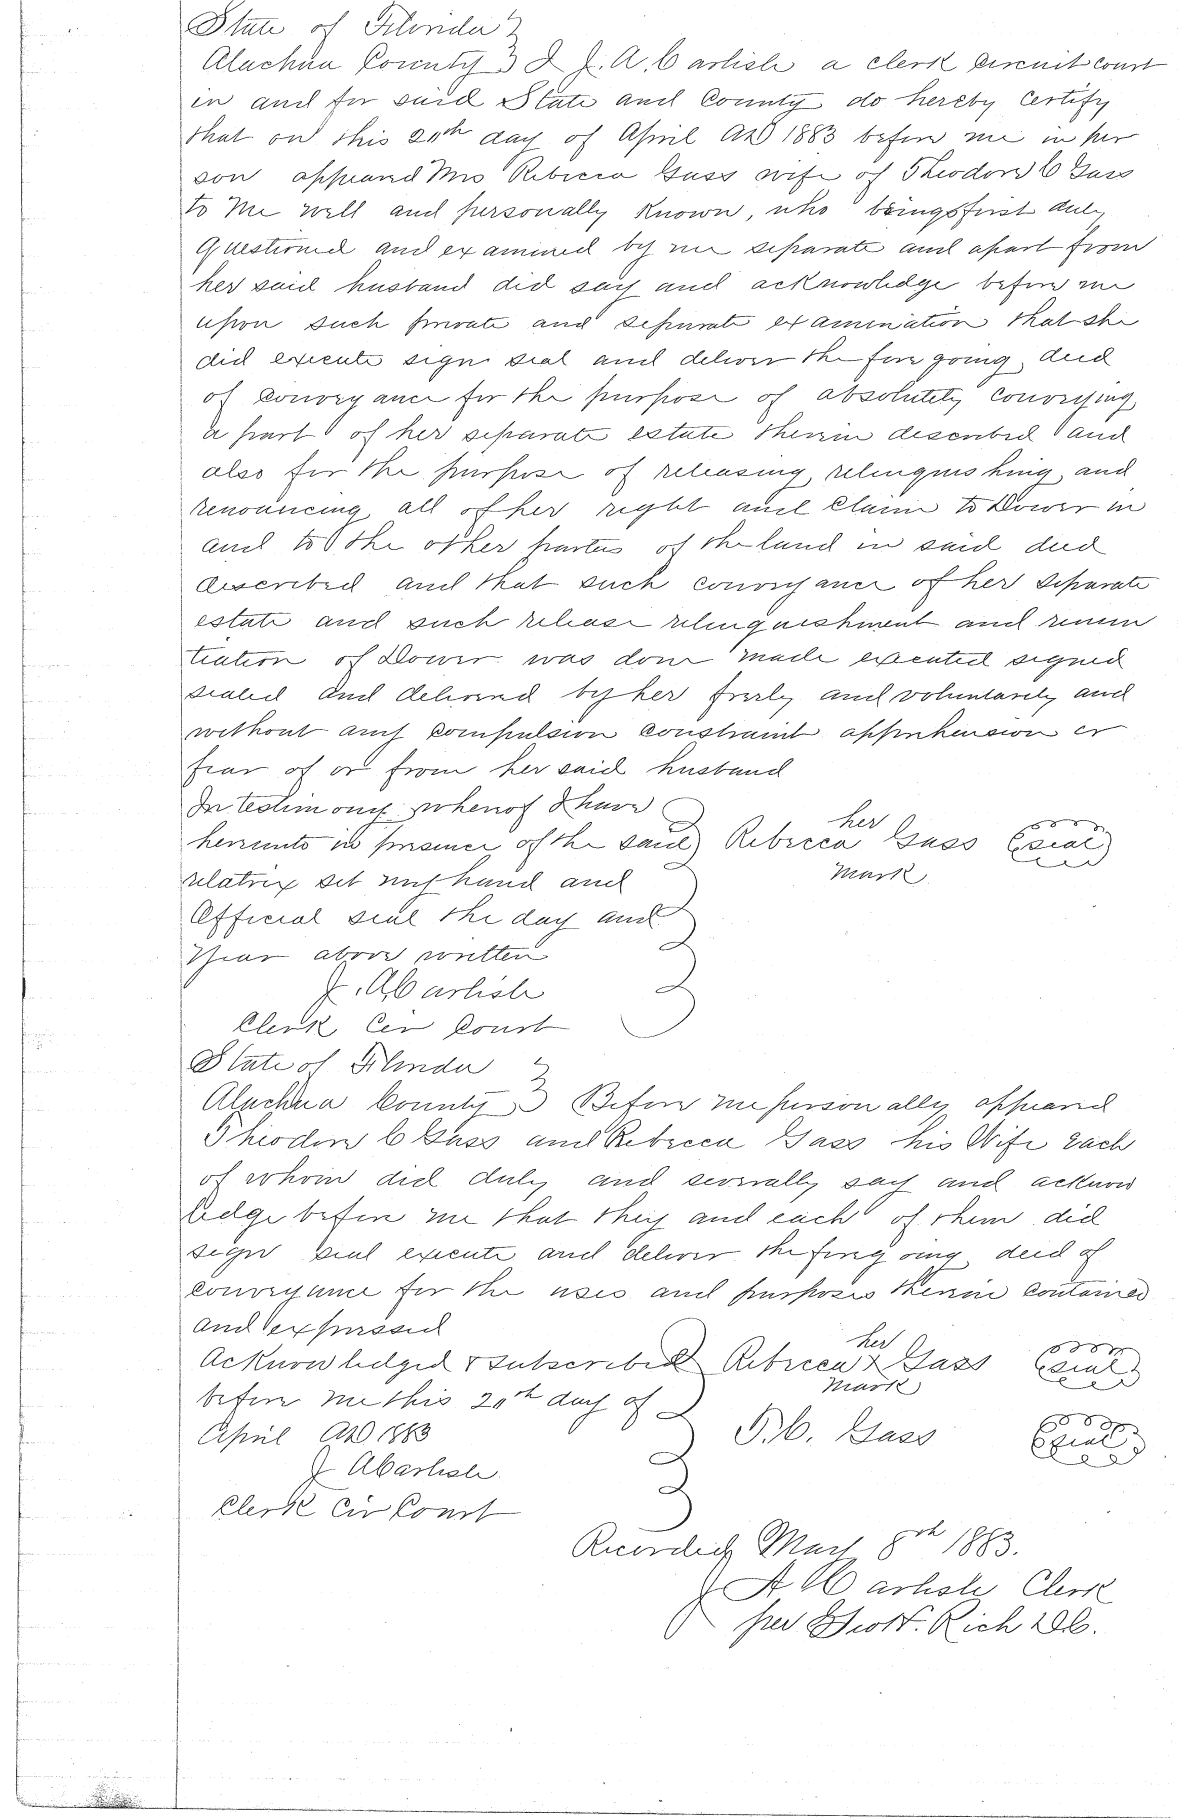 State of Florida
Alachua County I J. A. Carlisle a clerk circuit court
in and for said State and County do hereby certify
that on this 20th day of April AD 1883 before me in per
son appeared Mrs Rebecca Gass wife of Theodore C Gass
to me well and personally known, who being first duly
questioned and examined by me separate and apart from
her said husband did say and acknowledge before me
upon such private and separate examination that she
did execute sign seal and deliver the foregoing deed
of conveyance for the purpose of absolutely conveying
a part of her separate estate therein described and
also for the purpose of releasing, relinquishing and
renouncing all of her right and claim to Dower in
and to the other parties of the land in said deed
described and that such conveyance of her separate
estate and such release relinquishment and renun
tiation of Dower was done made executed signed
sealed and delivered by her freely and voluntarily and
without any compulsion constraint apprehension or
fear of or from her said husband
In testimony whereof I have
hereunto in presence of the said
relatrix set my hand and
Official seal the day and
Year above written
J. A. Carlisle
Clerk Cir Court
her
Rebecca Gass seal
mark
State of Florida
Alachua County Before me personally appeared
Theodore C Gass and Rebecca Gass his Wife Each
of whom did duly and severally say and acknow
ledge before me that they and each of them did
sign seal execute and deliver the foregoing deed of
conveyance for the uses and purposes therein contained
and expressed
Acknowledged & subscribed
before me this 20th day of
April AD 1883
J A Carlisle
Clerk Cir Court
her
Rebecca x Gass seal
mark
T. C. Gass seal
Recorded May 8th 1883.
J A Carlisle Clerk
per Geo H. Rich DC.